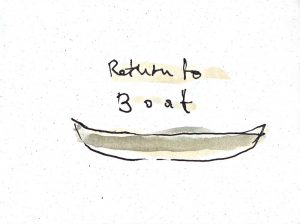 Return to
Boat